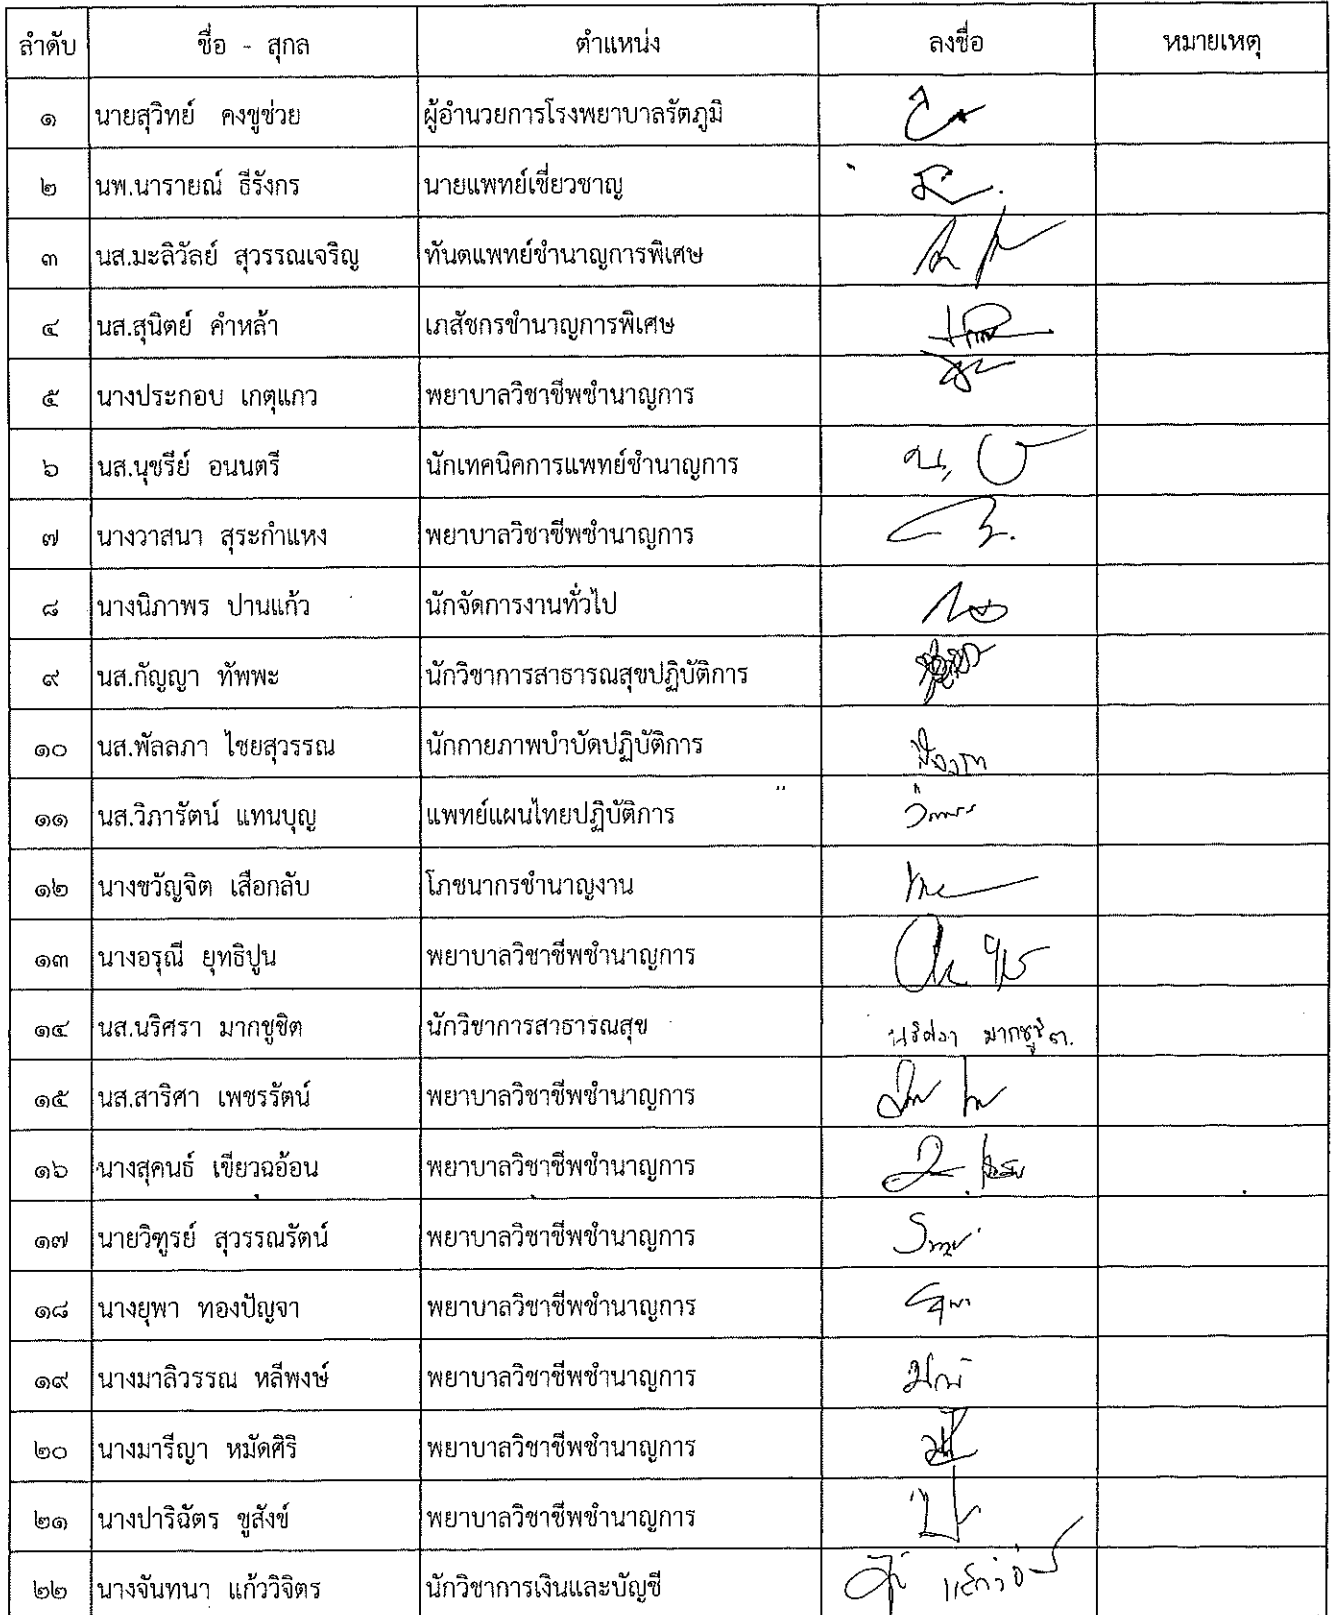 ลำดับ ชื่อ - สุกล ตำแหน่ง ลงชื่อ หมายเหตุ
๑ นายสุวิทย์ คงชูช่วย ผู้อำนวยการโรงพยาบาลรัตภูมิ
๒ นพ.นารายณ์ ธีรังกร นายแพทย์เชี่ยวชาญ
๓ นส.มะลิวัลย์ สุวรรณเจริญ ทันตแพทย์ชำนาญการพิเศษ
๔ นส.สุนิตย์ คำหล้า เภสัชกรชำนาญการพิเศษ
๕ นางประกอบ เกตุแกว พยาบาลวิชาชีพชำนาญการ
๖ นส.นุชรีย์ อนนตรี นักเทคนิคการแพทย์ชำนาญการ
๗ นางวาสนา สุระกำแหง พยาบาลวิชาชีพชำนาญการ
๘ นางนิภาพร ปานแก้ว นักจัดการงานทั่วไป
๙ นส.กัญญา ทัพพะ นักวิชาการสาธารณสุขปฏิบัติการ
๑๐ นส.พัลลภา ไชยสุวรรณ นักกายภาพบำบัดปฏิบัติการ
๑๑ นส.วิภารัตน์ แทนบุญ แพทย์แผนไทยปฏิบัติการ
๑๒ นางขวัญจิต เสือกลับ โภชนากรชำนาญงาน
๑๓ นางอรุณี ยุทธิปูน พยาบาลวิชาชีพชำนาญการ
๑๔ นส.นริศรา มากชูชิต นักวิชาการสาธารณสุข นริศรา มากชูชิต.
๑๕ นส.สาริศา เพชรรัตน์ พยาบาลวิชาชีพชำนาญการ
๑๖ นางสุคนธ์ เขียวฉอ้อน พยาบาลวิชาชีพชำนาญการ
๑๗ นายวิฑูรย์ สุวรรณรัตน์ พยาบาลวิชาชีพชำนาญการ
๑๘ นางยุพา ทองปัญจา พยาบาลวิชาชีพชำนาญการ
๑๙ นางมาลิวรรณ หลีพงษ์ พยาบาลวิชาชีพชำนาญการ
๒๐ นางมารีญา หมัดศิริ พยาบาลวิชาชีพชำนาญการ
๒๑ นางปาริฉัตร ชูสังข์ พยาบาลวิชาชีพชำนาญการ
๒๒ นางจันทนา แก้ววิจิตร นักวิชาการเงินและบัญชี